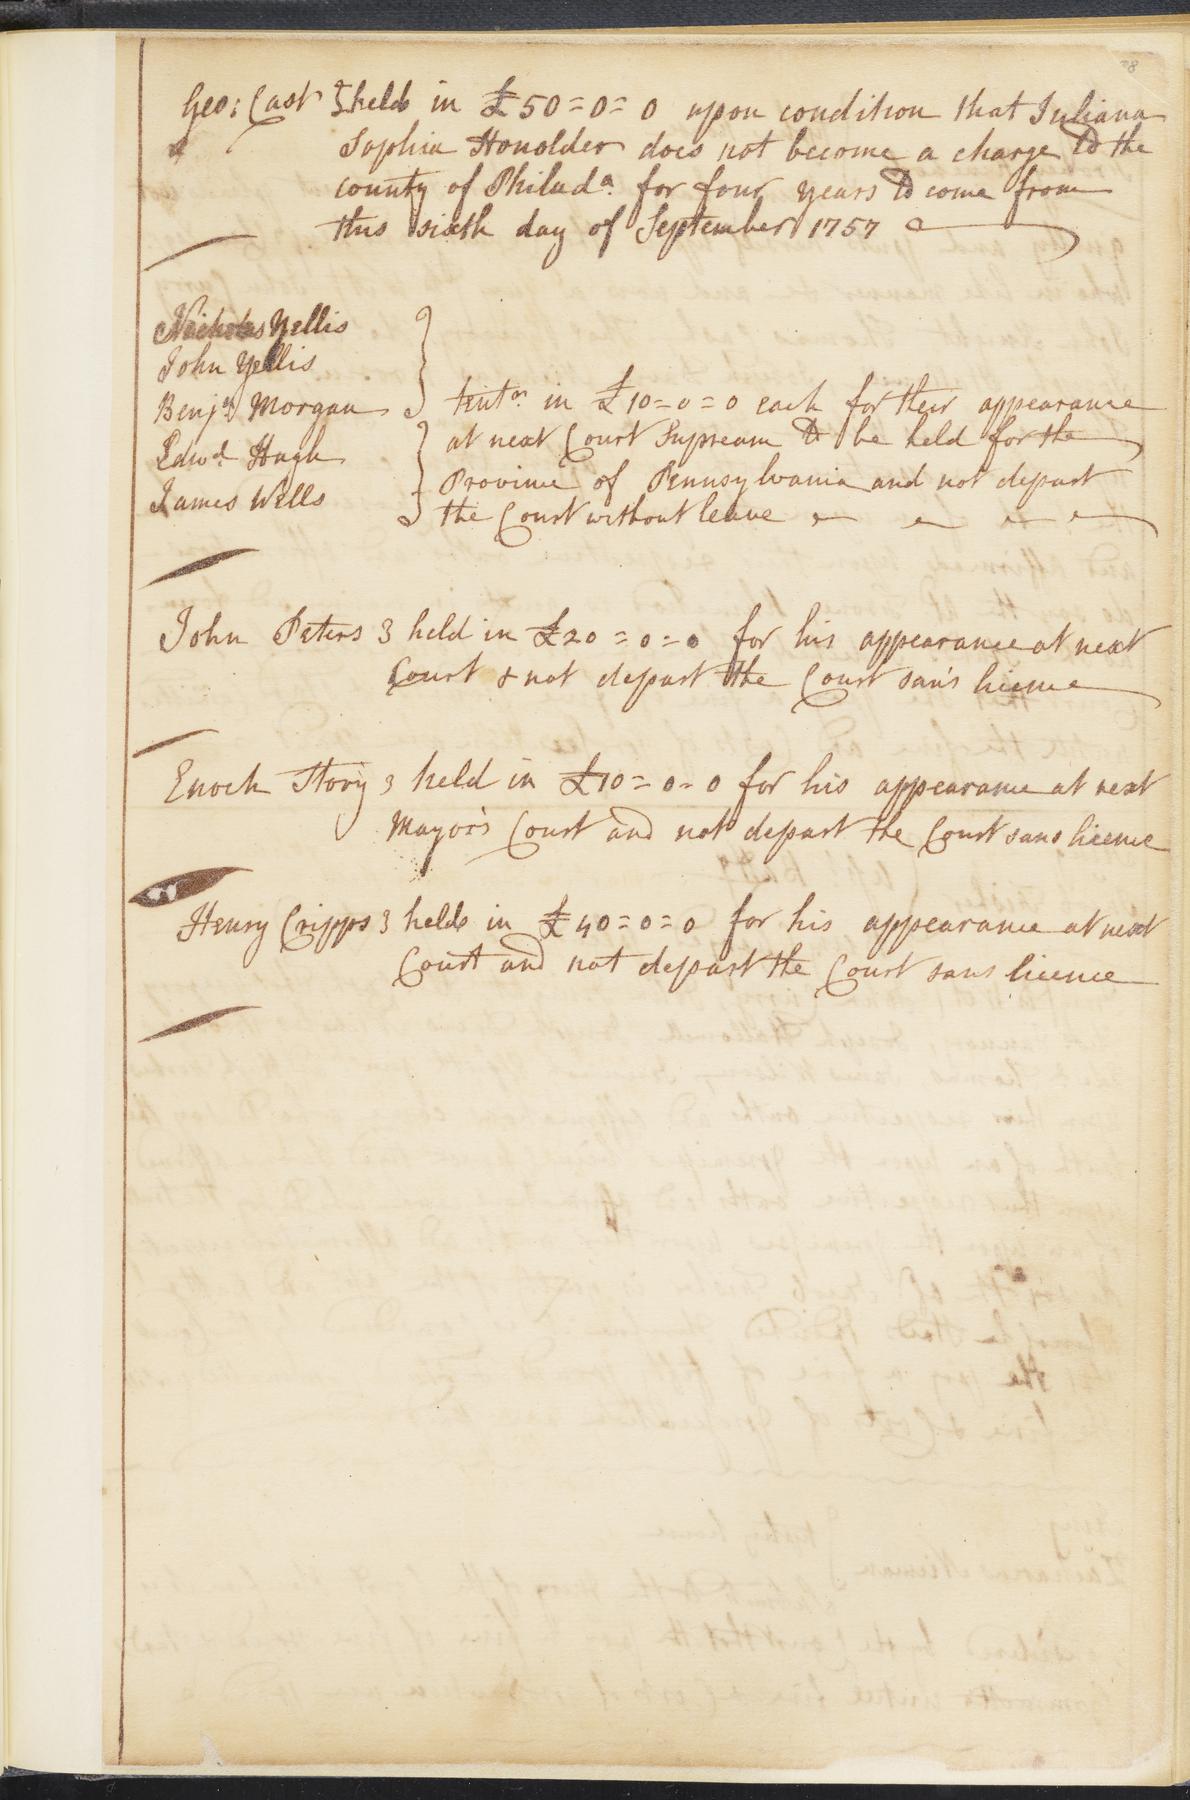 Geo: Cast } held in £50=0=0 upon condition that Juliana
Sophia Honolder does not become a charge to the
county of Philada. for four years to come from
this sixth day of September 1757
Nicholas Yellis
John Yellis
Benjn. Morgan
Edwd. Hugh
James Wells
tent. in £10=0=0 each for their appearance
at next Court Supream to be held for the
Province of Pennsylvania and not depart
the Court without leave
John Peters } held in £20=0=0 for his appearance at next
Court & not depart the Court san's licence
Enoch Story } held in £10=0=0 for his appearance at next
Mayor's Court and not depart the Court sans licence
Henry Cripps } held in £40=0=0 for his appearance at next
Court and not depart the Court sans licence